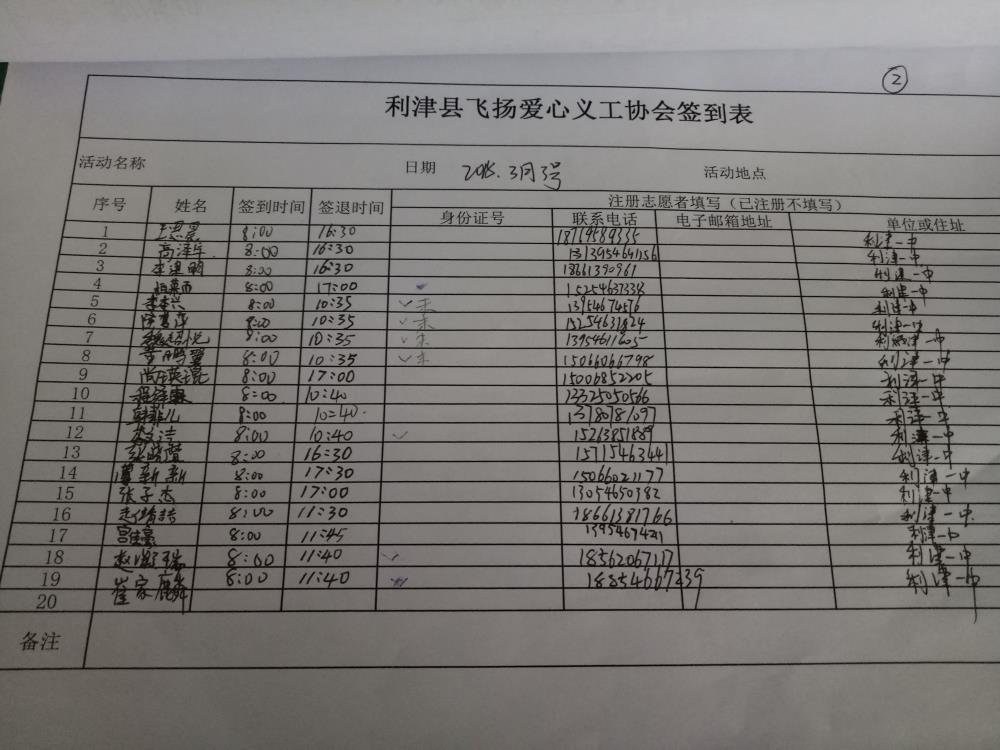 ②
利津县飞扬爱心义工协会签到表
活动名称 日期 3月3号 活动地点
序号 姓名 签到时间 签退时间 注册志愿者填写（已注册不填写）
身份证号 联系电话 电子邮箱地址 单位或住址
1 8:00 16:30 18769589335 利津一中
2 高泽华 8:00 16:30 利津一中
3 李建明 8:00 16:30 18661390961 利津一中
4 8:00 17:00 15254637338 利津一中
5 李本兴 8:00 10:35 ✓未 13954674576 利津一中
6 8:00 10:35 ✓未 15254631824 利津一中
7 8:00 10:35 ✓未 13954611605 一中
8 董鹏翼 8:00 10:35 ✓未 15066066798 利津一中
9 尚英琨 8:00 17:00 15006852205 利津一中
10 8:00 10:40 13325050566 利津一中
11 韩非儿 8:00 10:40 13780781097 利津一中
12 8:00 10:40 ✓ 15263851889 利津一中
13 张晓莹 8:00 16:30 1571546344 利津一中
14 新新 8:00 17:30 15066021177 利津一中
15 张子杰 8:00 17:00 13054650382 利津一中
16 8:00 11:30 18661381766 利津一中
17 8:00 11:45 利津一中
18 赵 瑞 8:00 11:40 ✓ 18562067117 利津一中
19 崔家麟 8:00 11:40 ✓ 18854667239 利津一中
20
备注